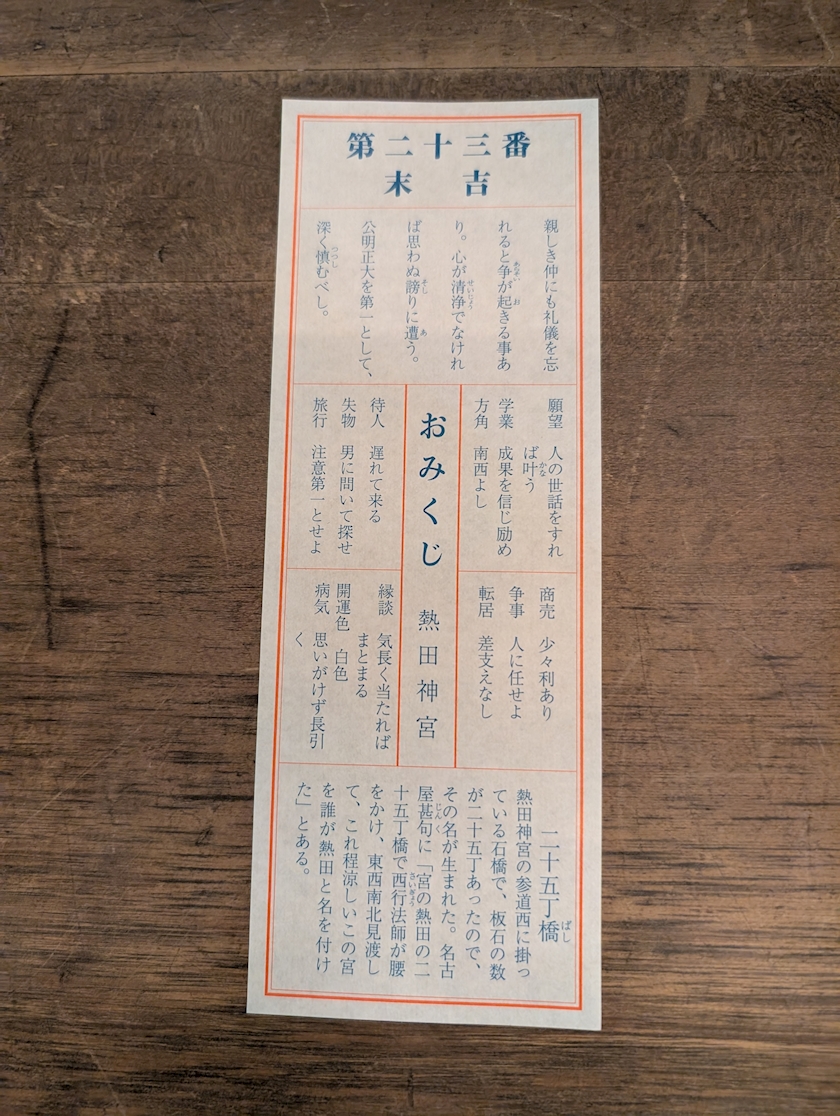 第二十三番
末吉
親しき仲にも礼儀を忘
れると争が起きる事あ
り。心が清浄でなけれ
ば思わぬ謗りに遭う。
公明正大を第一として、
深く慎むべし。
あらそい
お
せいじょう
そし
あ
つつし
願望 人の世話をすれ
ば叶う
かな
学業 成果を信じ励め
方角 南西よし
商売 少々利あり
争事 人に任せよ
転居 差支えなし
おみくじ 熱田神宮
待人 遅れて来る
失物 男に問いて探せ
旅行 注意第一とせよ
縁談 気長く当たれば
まとまる
開運色 白色
病気 思いがけず長引
く
二十五丁橋
ばし
熱田神宮の参道西に掛っ
ている石橋で、板石の数
が二十五丁あったので、
その名が生まれた。名古
屋甚句に「宮の熱田の二
じんく
十五丁橋で西行法師が腰
さいぎょう
をかけ、東西南北見渡し
て、これ程涼しいこの宮
を誰が熱田と名を付け
た」とある。